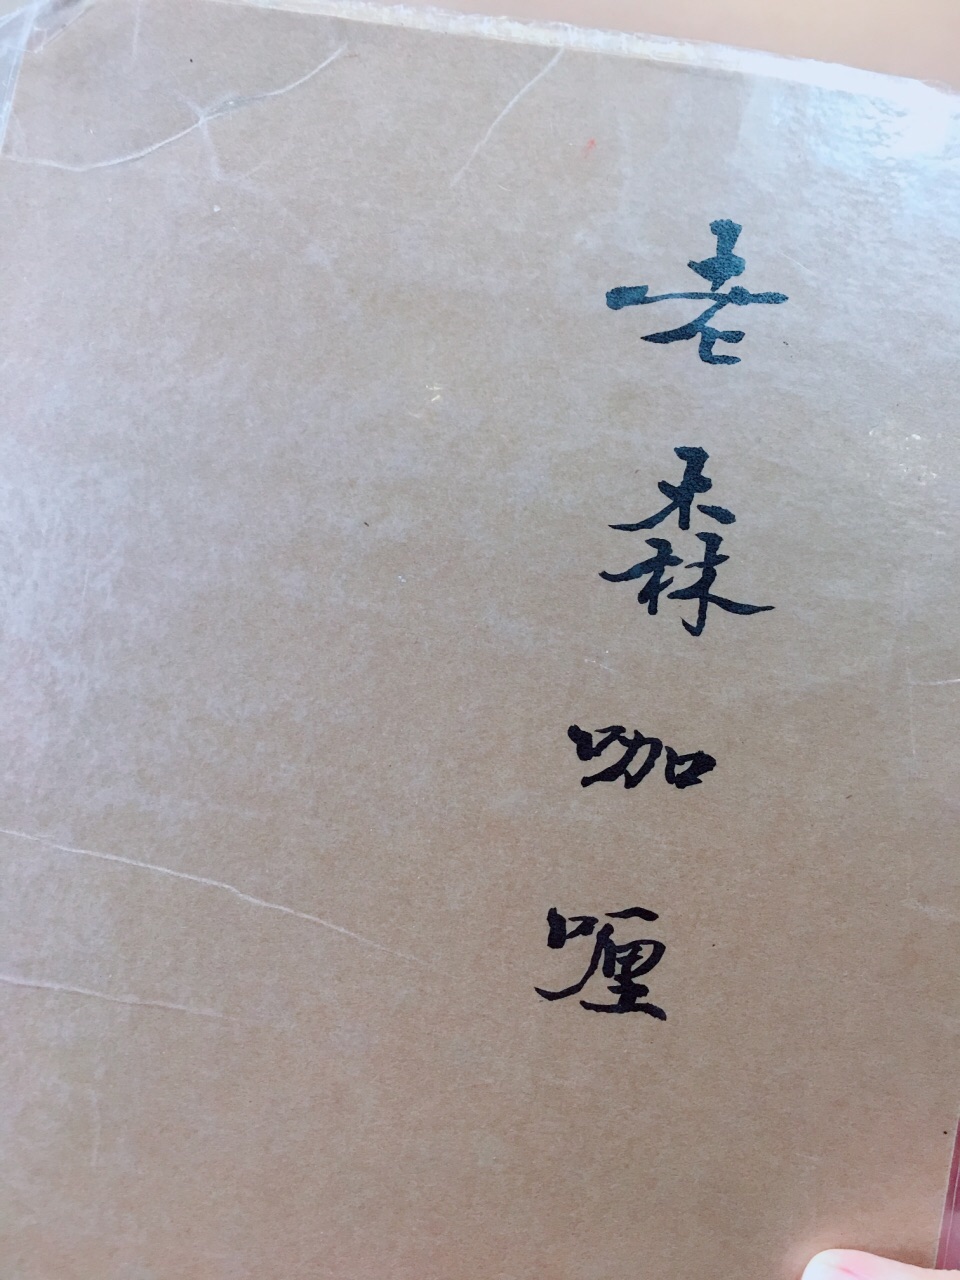 老森咖喱